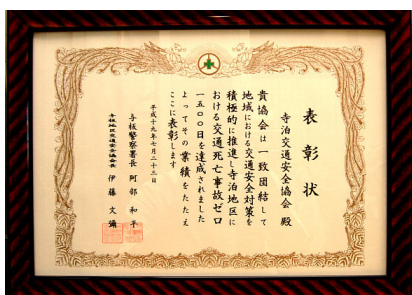 表彰状
寺泊交通安全協会 殿
貴協会は一致団結して
地域における交通安全対策を
積極的に推進し寺泊地区に
おける交通死亡事故ゼロ
一五〇〇日を達成されました
よってその業績をたたえ
ここに表彰します
平成十九年七月二十三日
与板警察署長 阿部 和平
与板地区交通安全協会長 伊藤 文彌